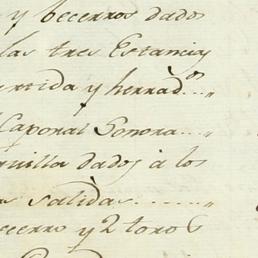 y becerros dados
las tres Estancias
ertida y herrad.os ..„
Caporal Sonora...„
nilla dados á los
salidas.......„
becerro y 2 toros